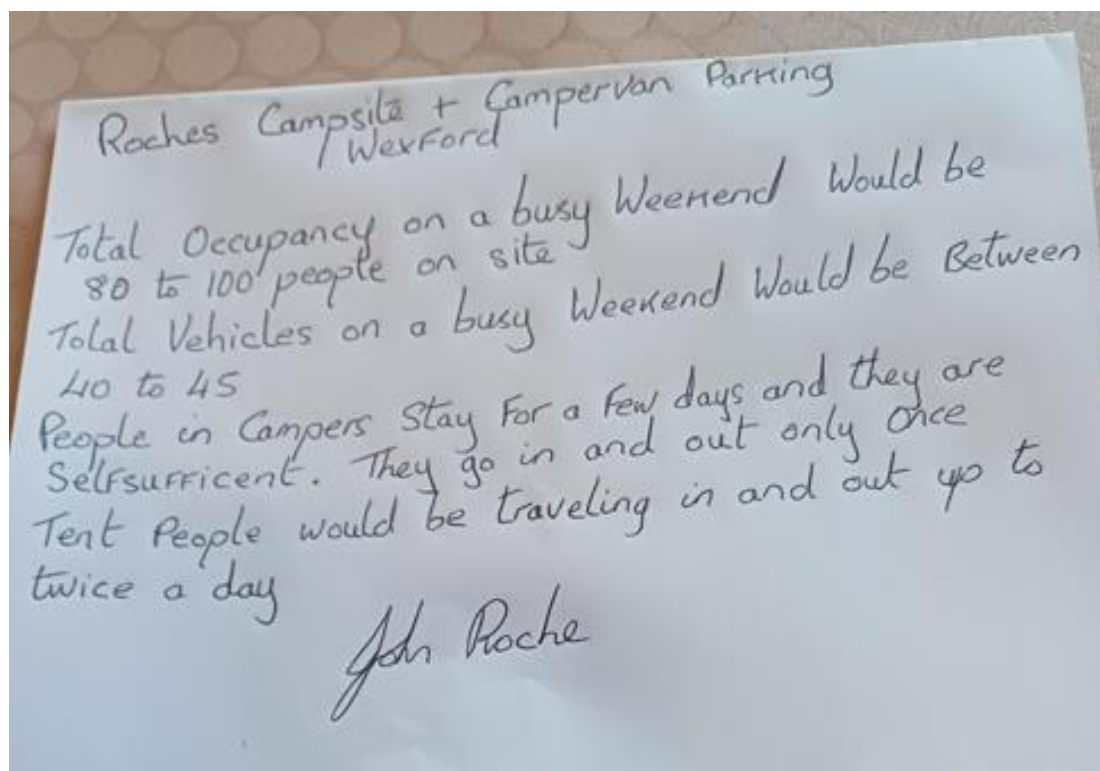 Roches Campsite + Campervan Parking
Wexford
Total Occupancy on a busy Weekend Would be
80 to 100 people on site
Total Vehicles on a busy Weekend Would be Between
40 to 45
People in Campers Stay For a Few days and they are
Selfsufficent. They go in and out only Once
Tent People would be traveling in and out up to
twice a day
John Roche